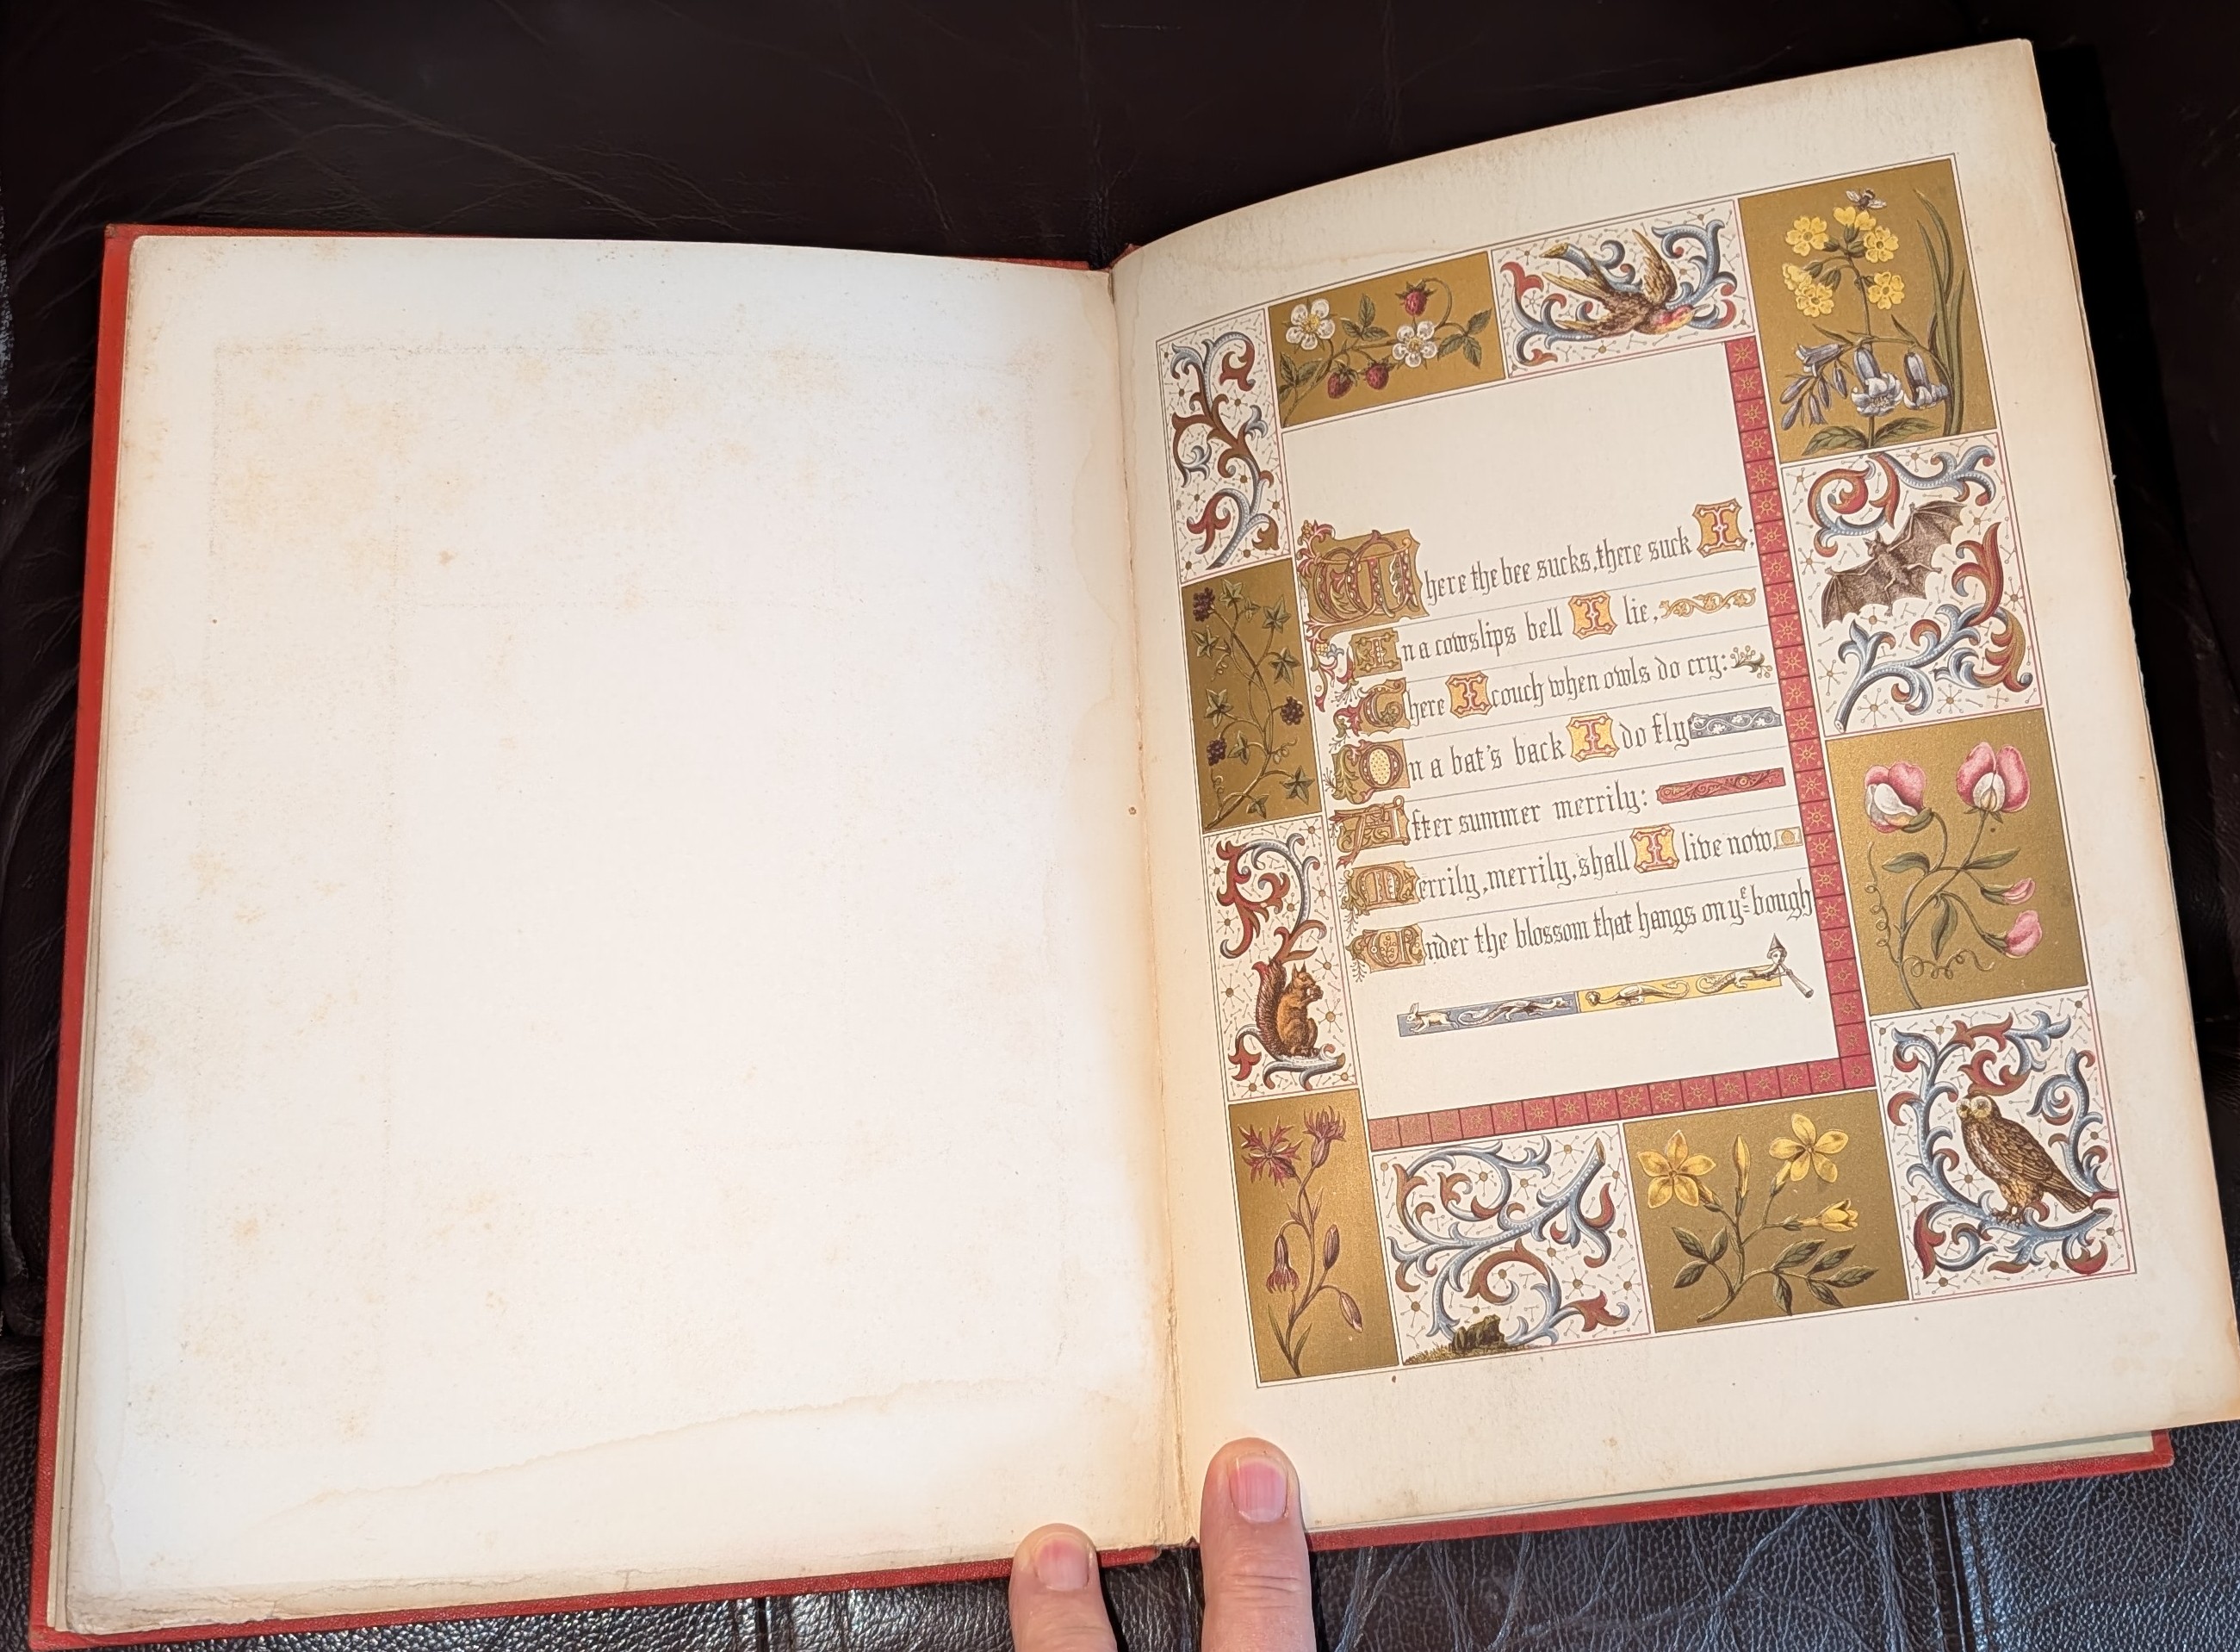 Where the bee sucks, there suck I,
In a cowslips bell I lie,
There I couch when owls do cry:
On a bat's back I do fly
After summer merrily:
Merrily, merrily, shall I live now
Under the blossom that hangs on yᵉ bough